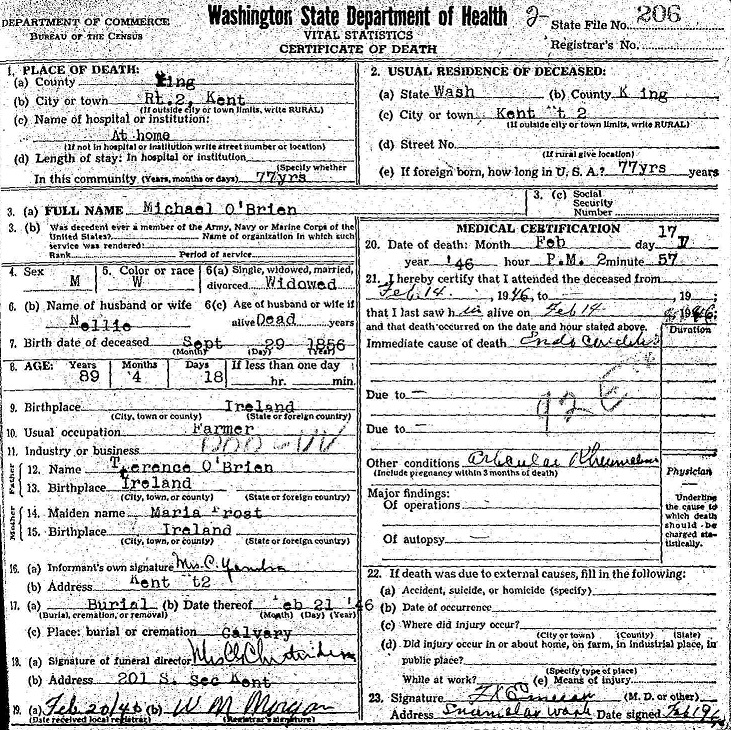 DEPARTMENT OF COMMERCE
BUREAU OF THE CENSUS
Washington State Department of Health
VITAL STATISTICS
CERTIFICATE OF DEATH
2-
State File No. 206
Registrar's No.
1. PLACE OF DEATH:
(a) County King
(b) City or town Rt.2, Kent
(If outside city or town limits, write RURAL)
(c) Name of hospital or institution:
At home
(If not in hospital or institution write street number or location)
(d) Length of stay: In hospital or institution
(Specify whether
In this community (Years, months or days) 77yrs
2. USUAL RESIDENCE OF DECEASED:
(a) State Wash (b) County K ing
(c) City or town Kent t 2
(If outside city or town limits, write RURAL)
(d) Street No.
(If rural give location)
(e) If foreign born, how long in U. S. A.? 77yrs years
3. (a) FULL NAME Michael O'Brien
3. (c) Social
Security
Number
3. (b) Was decedent ever a member of the Army, Navy or Marine Corps of the
United States? Name of organization in which such
service was rendered:
Rank Period of service
4. Sex M
5. Color or race W
6(a) Single, widowed, married,
divorced Widowed
6. (b) Name of husband or wife
Nellie
6(c) Age of husband or wife if
alive Dead years
7. Birth date of deceased Sept 29 1856
(Month) (Day) (Year)
8. AGE: Years Months Days If less than one day
89 4 18 hr. min.
9. Birthplace Ireland
(City, town or county) (State or foreign country)
10. Usual occupation Farmer
11. Industry or business
Father
12. Name Terence O'Brien
13. Birthplace Ireland
(City, town, or county) (State or foreign country)
Mother
14. Maiden name Maria Frost
15. Birthplace Ireland
(City, town, or county) (State or foreign country)
16. (a) Informant's own signature Mrs. C.
(b) Address Kent t2
17. (a) Burial (b) Date thereof Feb 21 '46
(Burial, cremation, or removal) (Month) (Day) (Year)
(c) Place: burial or cremation Calvary
18. (a) Signature of funeral director
(b) Address 201 S. Sec Kent
19. (a) Feb 20/46 (b) W M Morgan
(Date received local registrar) (Registrar's signature)
MEDICAL CERTIFICATION
20. Date of death: Month Feb day 17
year '46 hour P.M. 2 minute 57
21. I hereby certify that I attended the deceased from
Feb. 14. , 1946, to , 19 ;
that I last saw h im alive on Feb 14 1946;
and that death occurred on the date and hour stated above.
Duration
Immediate cause of death Endo Carditis
Due to —
92
Due to —
Other conditions
(Include pregnancy within 3 months of death)
Major findings:
Of operations
Of autopsy
Physician
Underline
the cause to
which death
should be
charged sta-
tistically.
22. If death was due to external causes, fill in the following:
(a) Accident, suicide, or homicide (specify)
(b) Date of occurrence
(c) Where did injury occur?
(City or town) (County) (State)
(d) Did injury occur in or about home, on farm, in industrial place, in
public place?
(Specify type of place)
While at work? (e) Means of injury
23. Signature (M. D. or other)
Address Date signed Feb 19